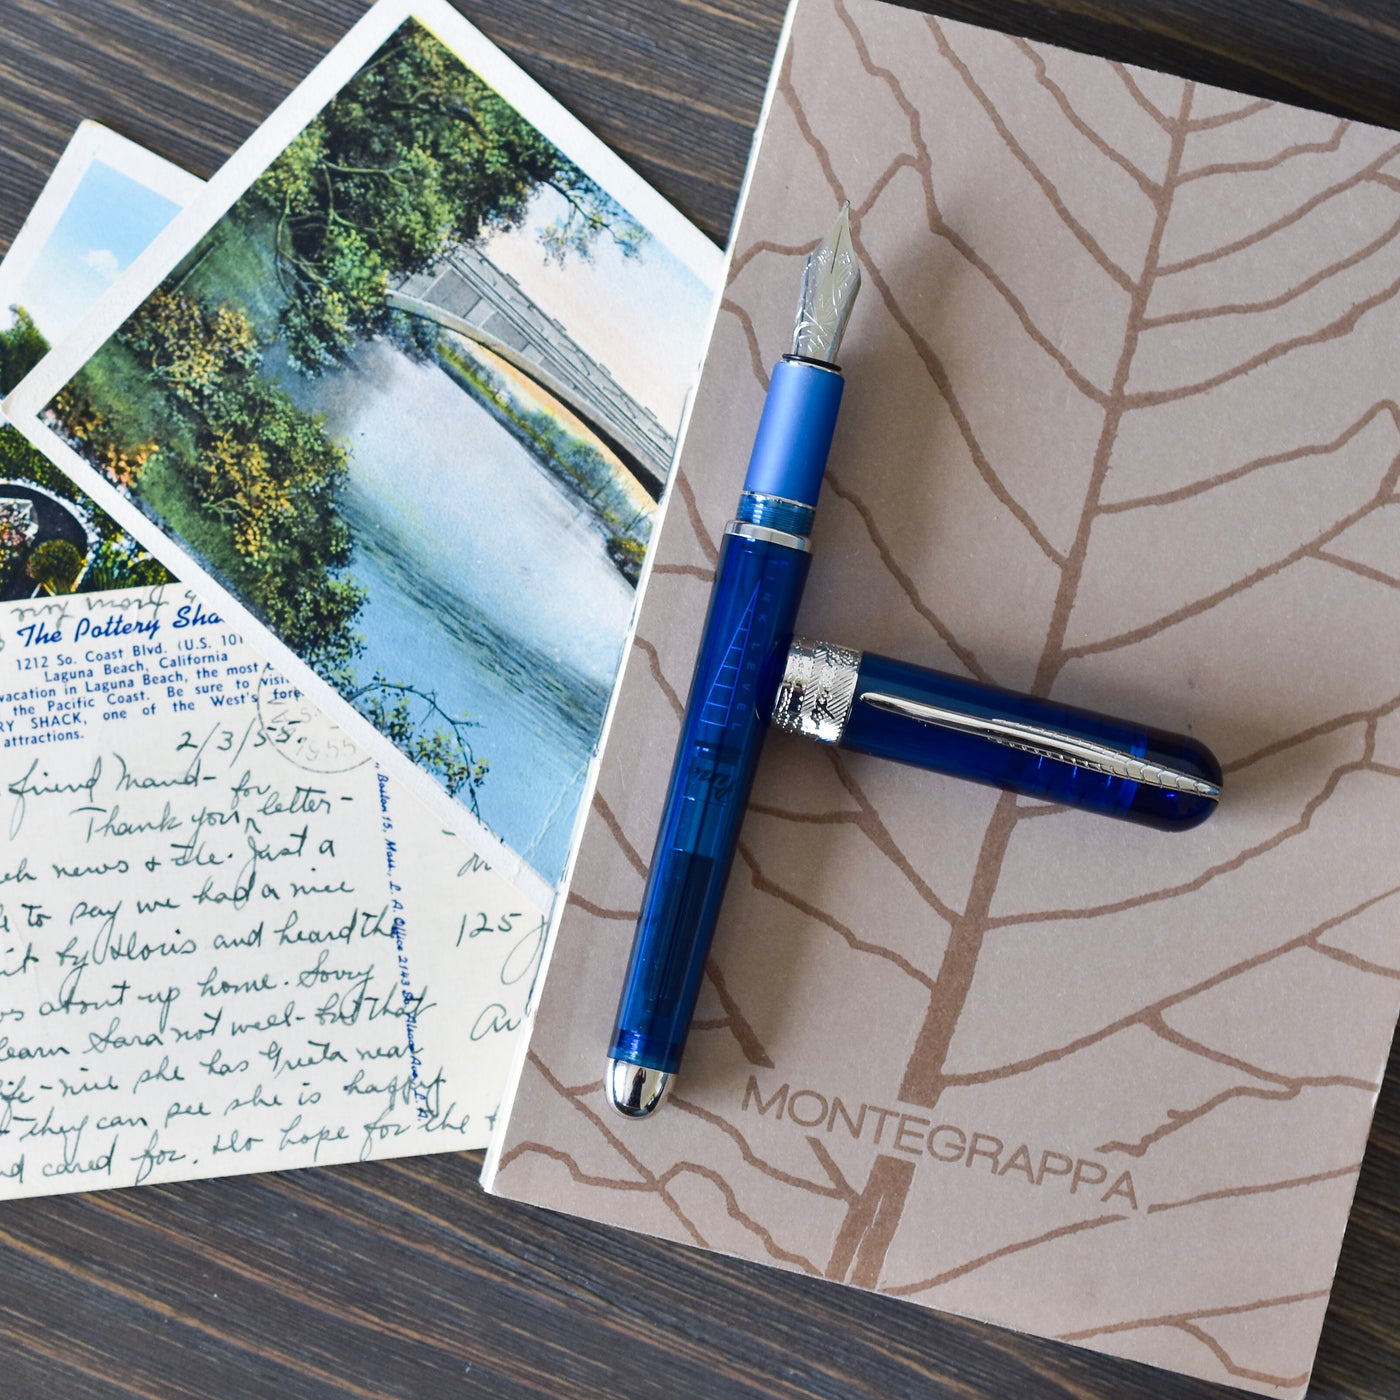 my mom
The Pottery Sha
1212 So. Coast Blvd. (U.S. 101
Laguna Beach, California
vacation in Laguna Beach, the most
the Pacific Coast. Be sure to visit
RY SHACK, one of the West's fore
attractions.
2/3/55.
1955
friend Maud- for
Thank your letter-
news & Etc. Just a
to say we had a nice
it by Doris and heard the
about up home. Sorry
learn Sara not well- but that
life-nice she has Greeta near
they can see she is happy
nd cared for. Do hope for the
Boston 15, Mass., L. A. Office 2143 So. Alsace Ave., L. A.
125
INK LEVEL
MONTEGRAPPA